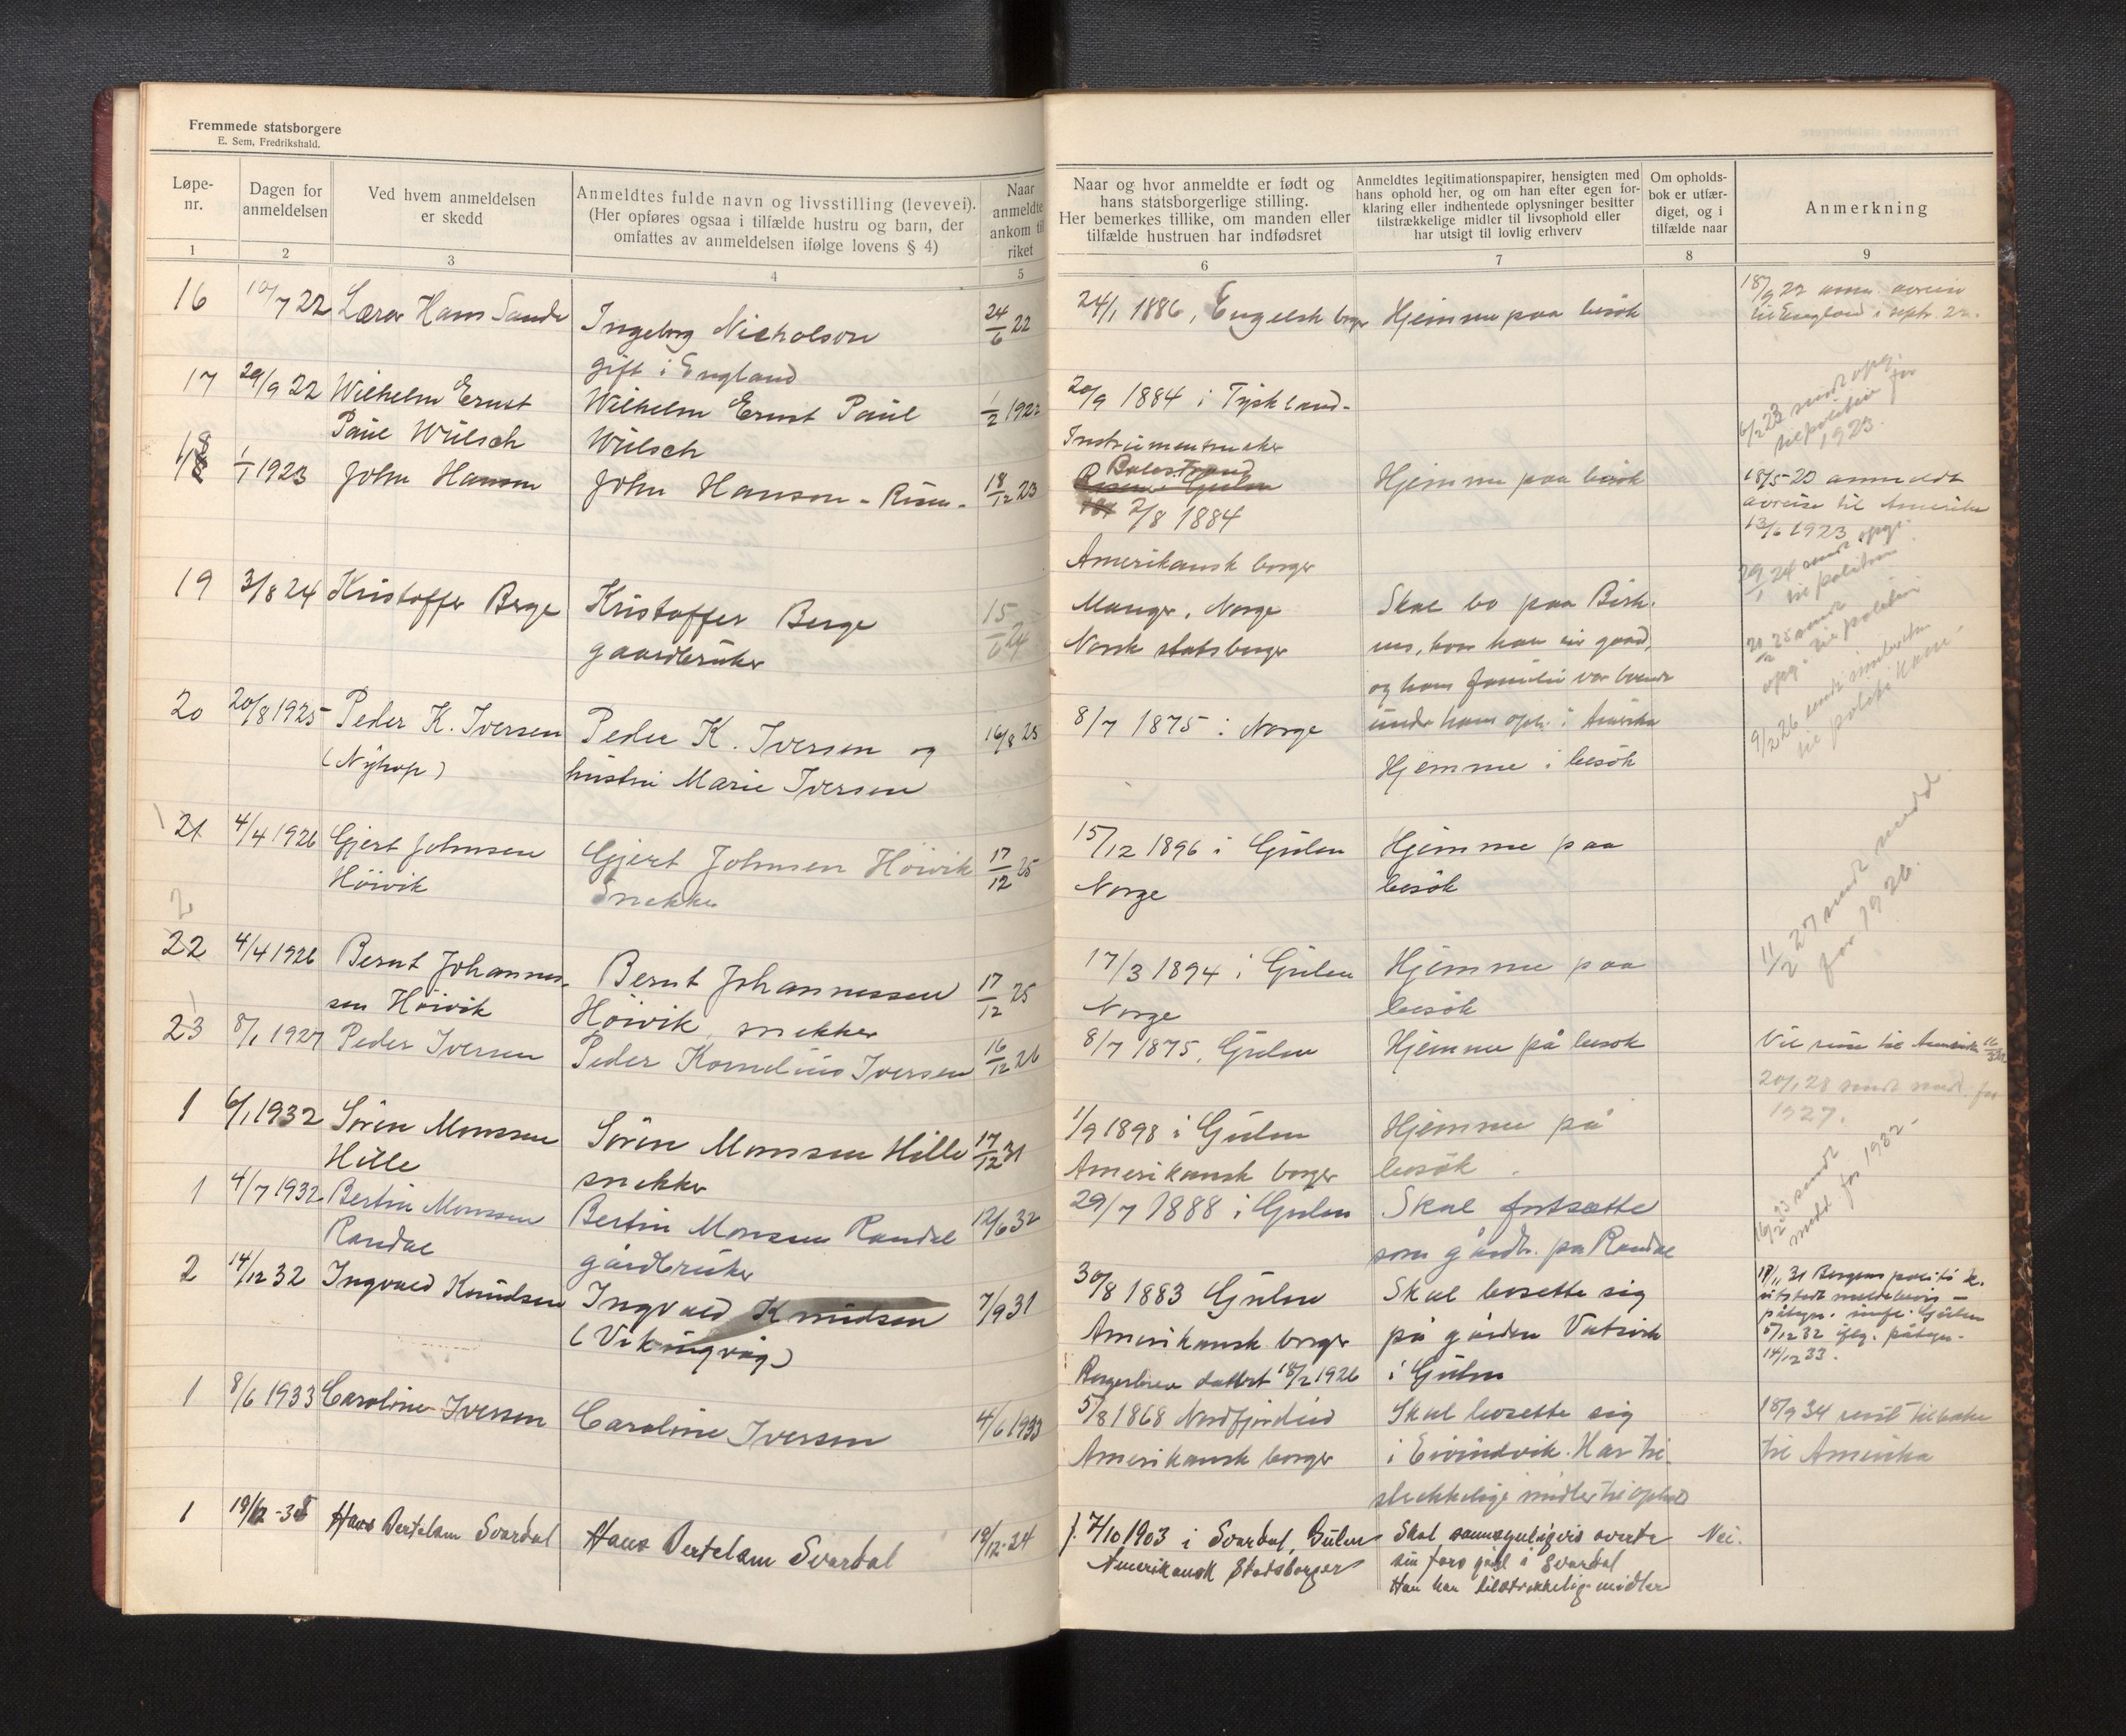 Fremmede statsborgere
E. Sem, Fredrikshald.
Løpe-
nr.
Dagen for
anmeldelsen
Ved hvem anmeldelsen
er skedd
Anmeldtes fulde navn og livsstilling (levevei).
(Her opføres ogsaa i tilfælde hustru og barn, der
omfattes av anmeldelsen ifølge lovens § 4)
Naar
anmeldte
ankom til
riket
Naar og hvor anmeldte er født og
hans statsborgerlige stilling.
Her bemerkes tillike, om manden eller
tilfælde hustruen har indfødsret
Anmeldtes legitimationspapirer, hensigten med
hans ophold her, og om han efter egen for-
klaring eller indhentede oplysninger besitter
tilstrækkelige midler til livsophold eller
har utsigt til lovlig erhverv
Om opholds-
bok er utfær-
diget, og i
tilfælde naar
Anmerkning
1 2 3 4 5 6 7 8 9
16 10/7 22 Lærer Hans Sande
Ingeborg Nicholson
gift i England
24/6 22
24/1 1886, Engelsk borger
Hjemme paa besök
18/9 22 anm. avreise
til England i sept. 22.
17 29/9 22 Wilhelm Ernst
Paul Wülsch
Wilhelm Ernst Paul
Wülsch
1/2 1922
20/9 1884 i Tyskland-
Instrumentmaker
6/2 23 sendt opg.
til politiet for
1923.
18 1/1 1923 John Hanson
John Hanson -
18/12 23
Balestrand
2/8 1884
Amerikansk borger
Hjemme paa besök
18/5-23 anmeldt
avreise til Amerika
13/6 1923
29/1 24 sendt opg.
til politiet
19 3/8 24 Kristoffer Berge
Kristoffer Berge
gaardbruker
15/6 24
Manger, Norge
Norsk statsborger
Skal bo paa
hvor han eir gaard,
og hans familie var boende
under hans oph. i Amerika
20/12 25 sendt
opg. til politiet
20 20/8 1925 Peder K. Iversen
(Nyhop)
Peder K. Iversen og
hustru Marie Iversen
16/8 25
8/7 1875 i Norge
Hjemme i besök
9/2 26 sendt
til
21 4/4 1926 Gjert Johnsen
Höivik
Gjert Johnsen Höivik
Snekker
17/12 25
15/12 1896 i Gulen
Norge
Hjemme paa
besök
2
22 4/4 1926 Bernt Johannes-
sen Höivik
Bernt Johannessen
Höivik, snekker
17/12 25
17/3 1894 i Gulen
Norge
Hjemme paa
besök
11/2 27 sendt medd.
for 1926.
23 8/1 1927 Peder Iversen
Peder Kornelius Iversen
16/12 26
8/7 1875, Gulen
Hjemme på besök
Vil reise til Amerika
20/1 28 sendt medd. for
1927.
1 6/1 1932 Sörin Monssen
Hille
Sörin Monssen Hille
snekker
17/12 31
1/9 1898 i Gulen
Amerikansk borger
Hjemme på
besök.
1 4/7 1932 Bertin Monssen
Randal
Bertin Monssen Randal
gårdbruker
12/6 32
29/7 1888 i Gulen
Skal fortsætte
som gårdbr. på Randal
16/2 33 sendt
medd. for 1932-
2 14/12 32 Ingvald Knudsen
Ingvald Knudsen
(Vikingvåg)
7/9 31
30/8 1883 Gulen
Amerikansk borger
Borgerbrev datert 18/2 1926
Skal bosette sig
på gården Vatsvik
i Gulen
18/11 31 Bergens politik.
utstedt meldebevis -
påtegn. Gulen
5/12 32 påtegn.
14/12 33.
1 8/6 1933 Caroline Iversen
Caroline Iversen
4/6 1933
5/8 1868 Nordfjordeid
Amerikansk borger
Skal bosette sig
i Eivindvik. Har til-
strekkelige midler til ophold
18/9 34 reist tilbake
til Amerika
1 19/12-35 Hans Bertelsen Svardal
Hans Bertelsen Svardal
19/12-24
f. 7/10 1903 i Svardal, Gulen
Amerikansk Statsborger
Skal sannsynligvis overta
sin fars gård i Svardal
Han har tilstrekkelig midler
Nei.